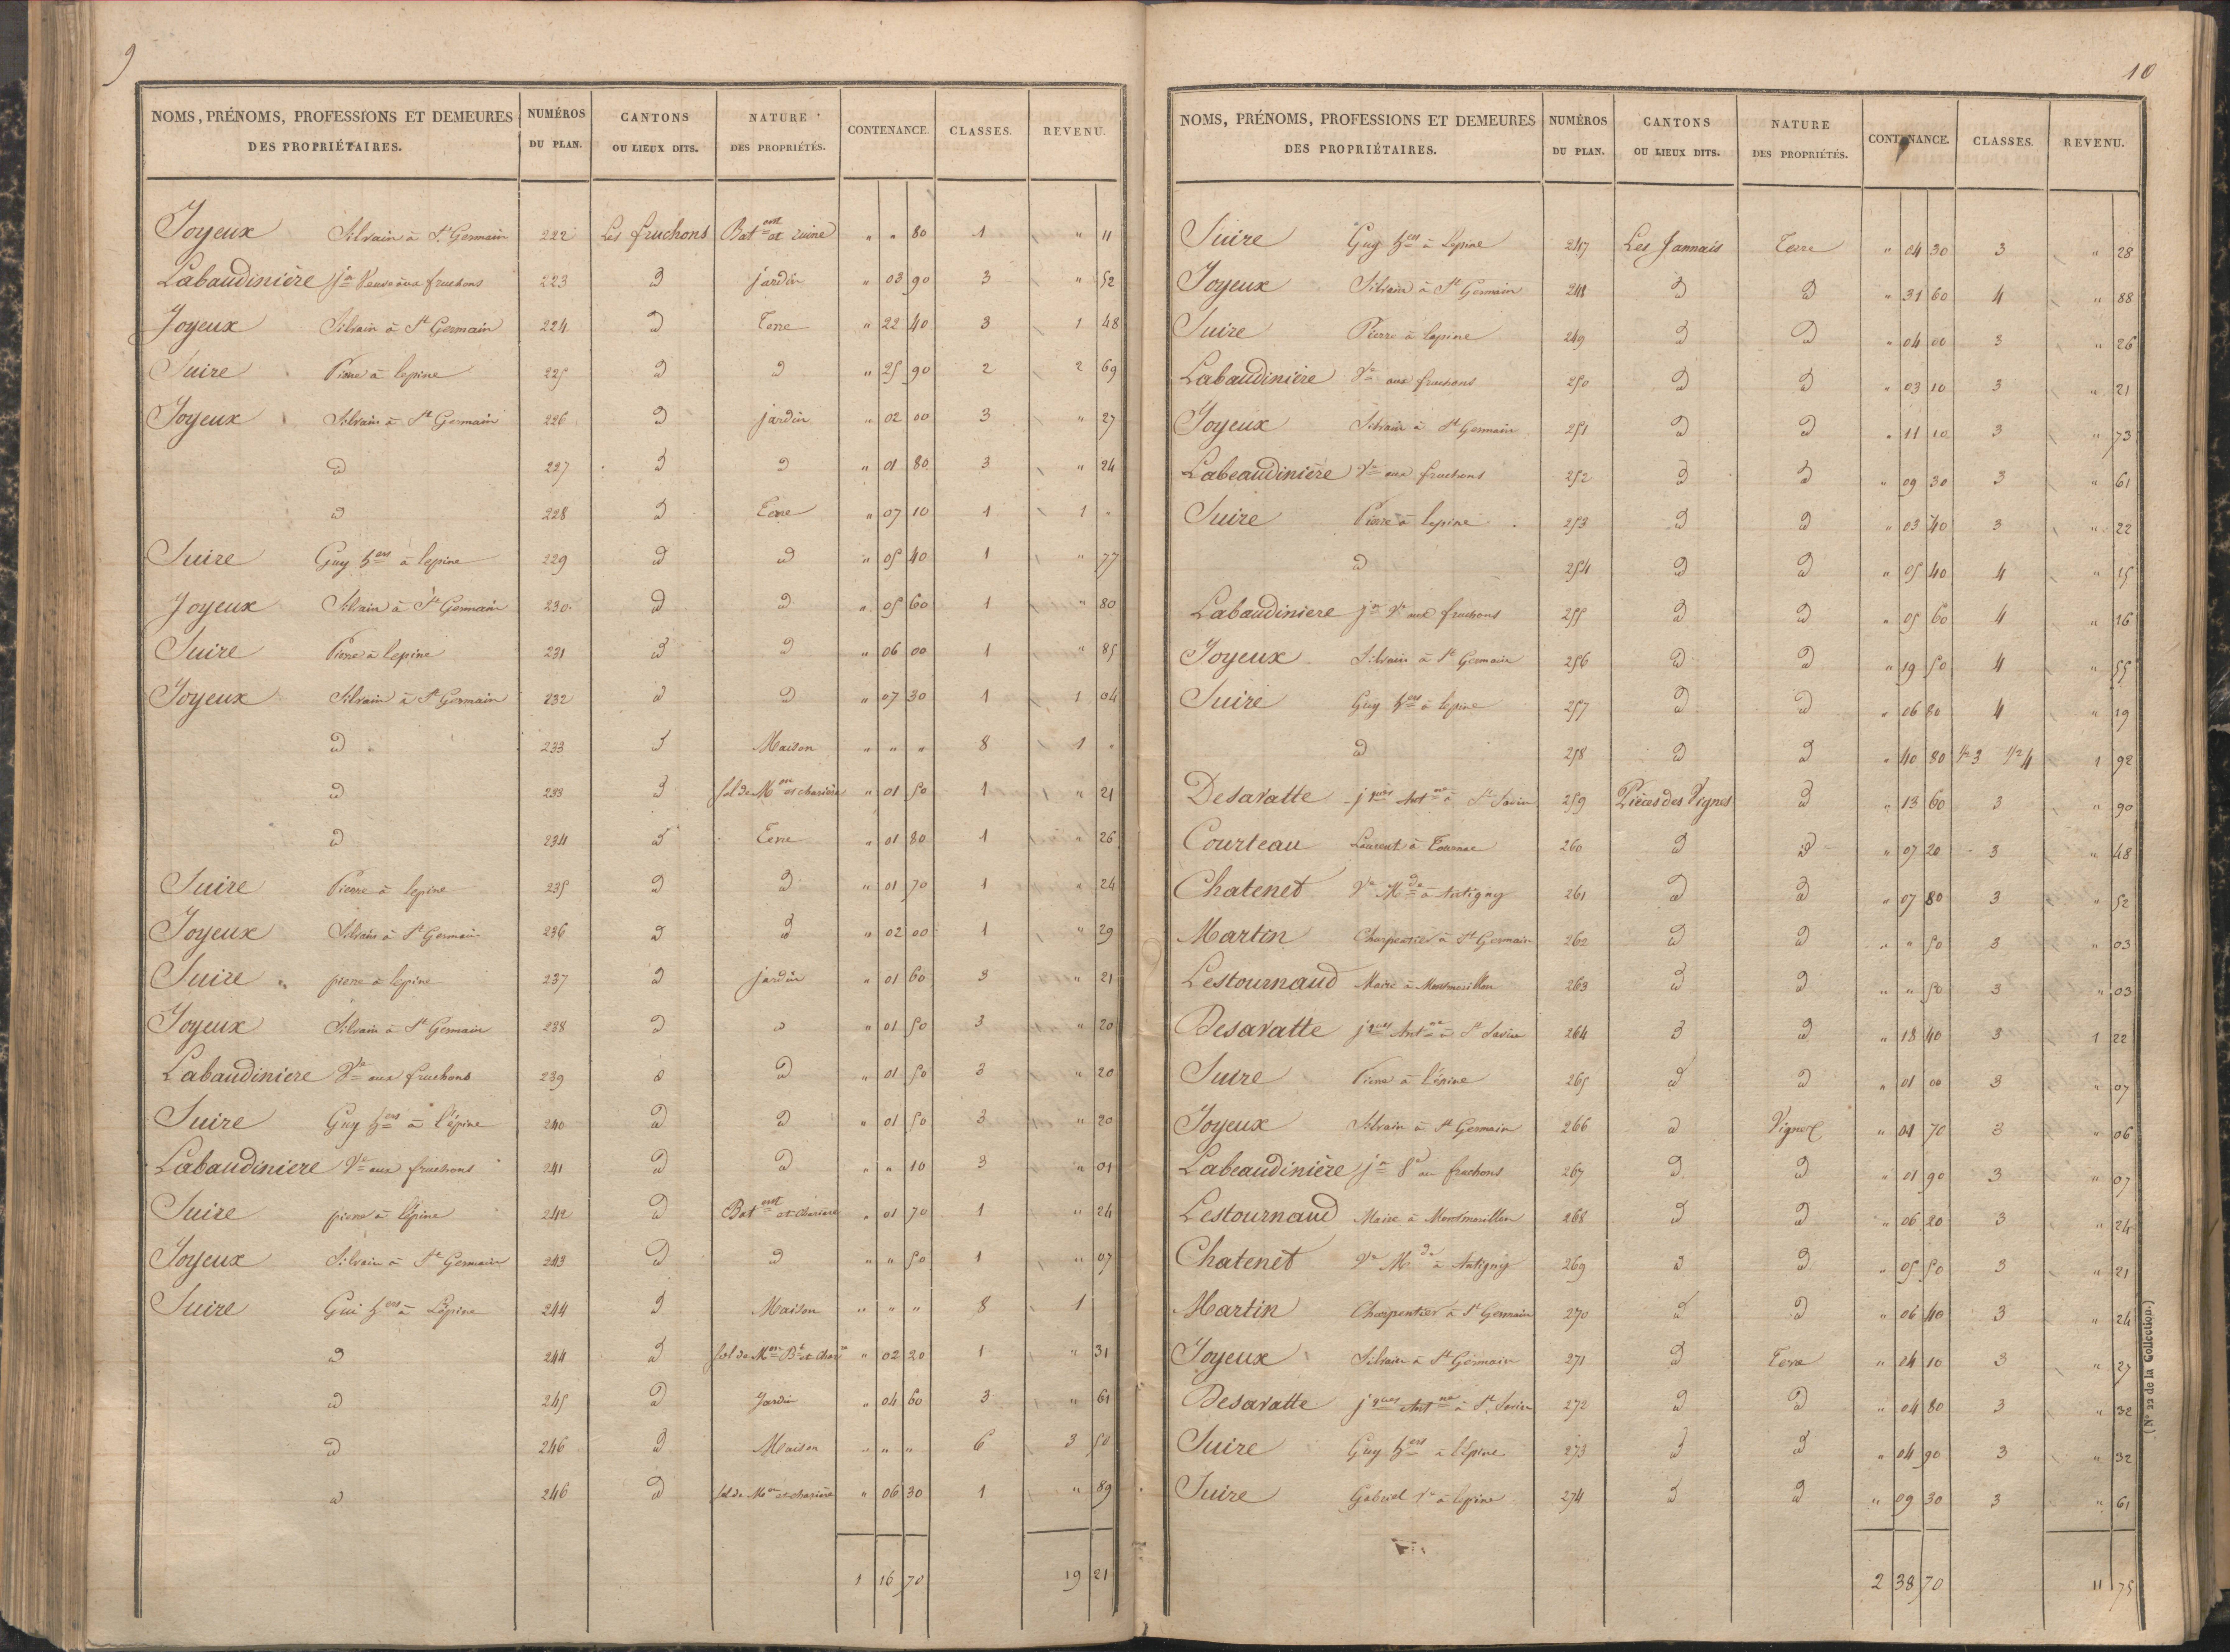 9
NOMS, PRÉNOMS, PROFESSIONS ET DEMEURES DES PROPRIÉTAIRES. NUMÉROS DU PLAN. CANTONS OU LIEUX DITS. NATURE DES PROPRIÉTÉS. CONTENANCE. CLASSES. REVENU.
Joyeux Silvain à St Germain 222 Les fruchons Batent et ruine " " 80 1 " 11
Labaudinière jn Veuve aux fruchons 223 d jardin " 03 90 3 " 52
Joyeux Silvain à St Germain 224 d Terre " 22 40 3 1 48
Suire Pierre à lepine 225 d d " 25 90 2 2 69
Joyeux Silvain à St Germain 226 d jardin " 02 00 3 " 27
d 227 d d " 01 80 3 " 24
d 228 d Terre " 07 10 1 1 "
Suire Guy hers à lepine 229 d d " 05 40 1 " 77
Joyeux Silvain à St Germain 230 d d " 05 60 1 " 80
Suire Pierre à lepine 231 d d " 06 00 1 " 85
Joyeux Silvain à St Germain 232 d d " 07 30 1 1 04
d 233 d Maison " " " 8 1 "
d 233 d sol de Mon et charière " 01 50 1 " 21
d 234 d Terre " 01 80 1 " 26
Suire Pierre à lepine 235 d d " 01 70 1 " 24
Joyeux Silvain à St Germain 236 d d " 02 00 1 " 29
Suire pierre à lepine 237 d jardin " 01 60 3 " 21
Joyeux Silvain à St Germain 238 d d " 01 50 3 " 20
Labaudiniere Ve aux fruchons 239 d d " 01 50 3 " 20
Suire Guy hers à l'épine 240 d d " 01 50 3 " 20
Labaudiniere Ve aux fruchons 241 d d " " 10 3 " 01
Suire pierre à lépine 242 d Batent et charière " 01 70 1 " 24
Joyeux Silvain à St Germain 243 d d " " 50 1 " 07
Suire Gui hers à Lépine 244 d Maison " " " 8 1
d 244 d sol de Mon Bt et chare " 02 20 1 " 31
d 245 d Jardin " 04 60 3 " 61
d 246 d Maison " " " 6 3 50
d 246 d sol de Mon et charière " 06 30 1 " 89
1 16 70 19 21
10
NOMS, PRÉNOMS, PROFESSIONS ET DEMEURES DES PROPRIÉTAIRES. NUMÉROS DU PLAN. CANTONS OU LIEUX DITS. NATURE DES PROPRIÉTÉS. CONTENANCE. CLASSES. REVENU.
Suire Guy hers à Lepine 247 Les Jannais Terre " 04 30 3 " 28
Joyeux Silvain à St Germain 248 d d " 31 60 4 " 88
Suire Pierre à lepine 249 d d " 04 00 3 " 26
Labaudinière Ve aux fruchons 250 d d " 03 10 3 " 21
Joyeux Silvain à St Germain 251 d d " 11 10 3 " 73
Labeaudinière Ve aux fruchons 252 d d " 09 30 3 " 61
Suire Pierre à lepine 253 d d " 03 40 3 " 22
d 254 d d " 05 40 4 " 15
Labaudiniere jn Ve aux fruchons 255 d d " 05 60 4 " 16
Joyeux Silvain à St Germain 256 d d " 19 50 4 " 55
Suire Guy hers à lepine 257 d d " 06 80 4 " 19
d 258 d d " 40 80 1/2 3 1/2 4 1 92
Desavatte jques Antne à St Savin 259 Pièces des Vignes d " 13 60 3 " 90
Courteau Laurent à Tournac 260 d d " 07 20 3 " 48
Chatenet Ve Mde à Antigny 261 d d " 07 80 3 " 52
Martin Charpentier à St Germain 262 d d " " 50 3 " 03
Lestournaud Maire à Montmorillon 263 d d " " 50 3 " 03
Desavatte jques Antne à St Savin 264 d d " 18 40 3 1 22
Suire Pierre à l'épine 265 d d " 01 00 3 " 07
Joyeux Silvain à St Germain 266 d Vigne " 01 70 3 " 06
Labeaudinière jn Ve au fruchons 267 d d " 01 90 3 " 07
Lestournaud Maire à Montmorillon 268 d d " 06 20 3 " 24
Chatenet Ve Mde à Antigny 269 d d " 05 50 3 " 21
Martin Charpentier à St Germain 270 d d " 06 40 3 " 24
Joyeux Silvain à St Germain 271 d Terre " 04 10 3 " 27
Desavatte jques Antne à St Savin 272 d d " 04 80 3 " 32
Suire Guy hers à l'Epine 273 d d " 04 90 3 " 32
Suire Gabriel Ve à lepine 274 d d " 09 30 3 " 61
2 38 70 11 75
(No 22 de la Collection.)